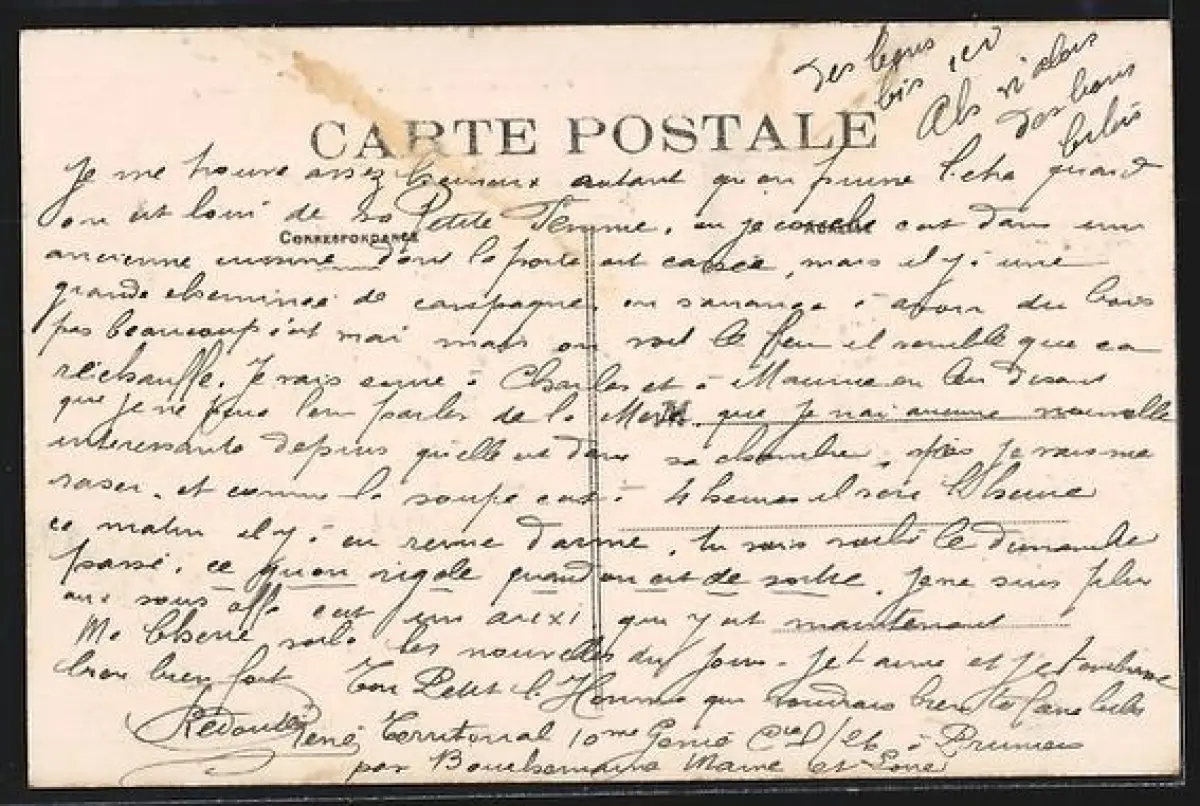 des bons
bis ici
des bons
CARTE POSTALE
Je me trouve assez heureux autant qu'on puisse l'etre quand
on est loin de sa Petite Femme, ou je couche c'est dans une
CORRESPONDANCE
ancienne cuisine dont la porte est cassée, mais il y a une
grande cheminée de campagne, on s'arrange à avoir du bois
pas beaucoup c'est vrai mais on voit le feu il semble que ca
réchauffe. Je vais ecrire à Charles et à Maurice en leur disant
que je ne peux leur parler de la que je n'ai aucune nouvelle
interressante depuis qu'elle est dans sa chambre, après je vais me
raser, et comme la soupe est à 4 heures il sera l'heure
ce matin il y a eu revue d'arme, tu sais le dimanche
passé, ce qu'on rigole quand on est de sortie, je ne suis plus
aux sous offs c'est un que y est maintenant
Ma Cherie voila les nouvelles du jour. Je t'aime et je t'embrasse
bien bien fort Ton Petit Homme que voudrais bien te faire
René Territorial 10me Génie Cie à Pruniers
par Bouchemaine Maine et Loire